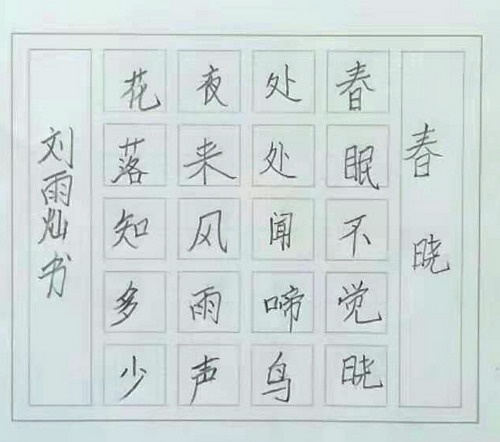 春晓
春眠不觉晓
处处闻啼鸟
夜来风雨声
花落知多少
刘雨灿书